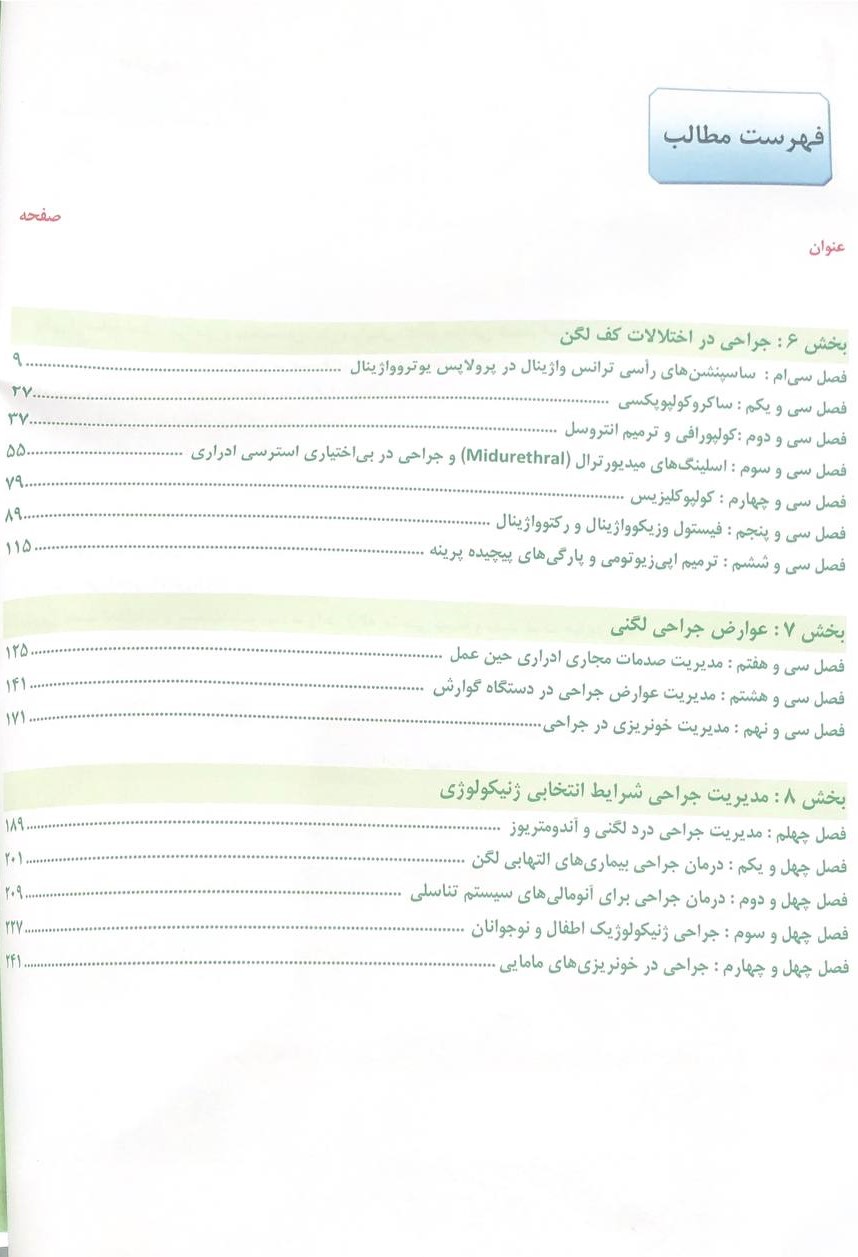 فهرست مطالب
صفحه
عنوان
بخش ۶: جراحی در اختلالات کف لگن
فصل سی‌ام : ساسپنشن‌های رأسی ترانس واژینال در پرولاپس یوتروواژینال ........ ۹
فصل سی و یکم : ساکروکولپوپکسی ........ ۲۷
فصل سی و دوم :کولپورافی و ترمیم انتروسل ........ ۳۷
فصل سی و سوم : اسلینگ‌های میدیورترال (Midurethral) و جراحی در بی‌اختیاری استرسی ادراری ........ ۵۵
فصل سی و چهارم : کولپوکلیزیس ........ ۷۹
فصل سی و پنجم : فیستول وزیکوواژینال و رکتوواژینال ........ ۸۹
فصل سی و ششم : ترمیم اپی‌زیوتومی و پارگی‌های پیچیده پرینه ........ ۱۱۵
بخش ۷: عوارض جراحی لگنی
فصل سی و هفتم : مدیریت صدمات مجاری ادراری حین عمل ........ ۱۲۵
فصل سی و هشتم : مدیریت عوارض جراحی در دستگاه گوارش ........ ۱۴۱
فصل سی و نهم : مدیریت خونریزی در جراحی ........ ۱۷۱
بخش ۸: مدیریت جراحی شرایط انتخابی ژنیکولوژی
فصل چهلم : مدیریت جراحی درد لگنی و آندومتریوز ........ ۱۸۹
فصل چهل و یکم : درمان جراحی بیماری‌های التهابی لگن ........ ۲۰۱
فصل چهل و دوم : درمان جراحی برای آنومالی‌های سیستم تناسلی ........ ۲۰۹
فصل چهل و سوم : جراحی ژنیکولوژیک اطفال و نوجوانان ........ ۲۲۷
فصل چهل و چهارم : جراحی در خونریزی‌های مامایی ........ ۲۴۱